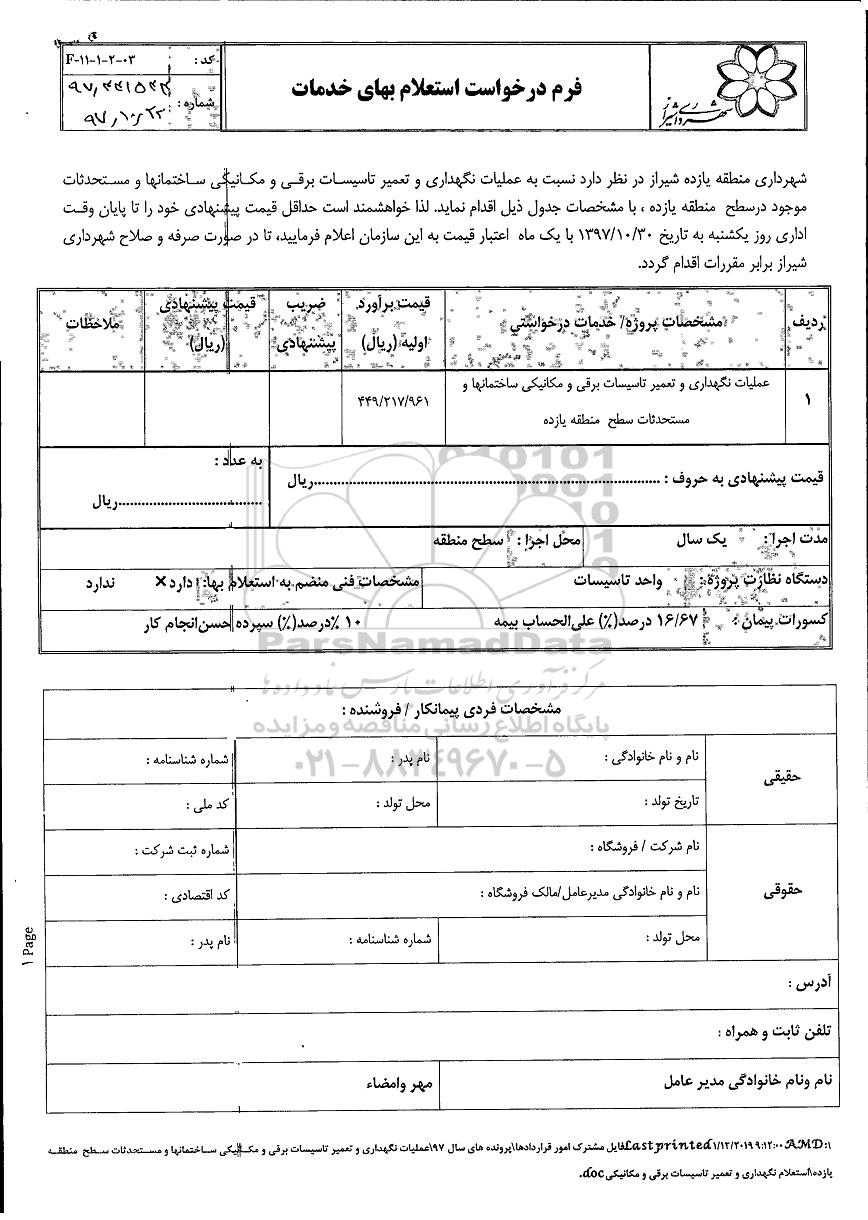 شهرداری شیراز
فرم درخواست استعلام بهای خدمات
کد : F-۱۱-۱-۲-۰۳
شماره :
۹۷/۱۰/۲۳
شهرداری منطقه یازده شیراز در نظر دارد نسبت به عملیات نگهداری و تعمیر تاسیسات برقی و مکانیکی ساختمانها و مستحدثات
موجود درسطح منطقه یازده ، با مشخصات جدول ذیل اقدام نماید. لذا خواهشمند است حداقل قیمت پیشنهادی خود را تا پایان وقت
اداری روز یکشنبه به تاریخ ۱۳۹۷/۱۰/۳۰ با یک ماه اعتبار قیمت به این سازمان اعلام فرمایید، تا در صورت صرفه و صلاح شهرداری
شیراز برابر مقررات اقدام گردد.
ردیف
مشخصات پروژه/ خدمات درخواستی
قیمت برآورد اولیه (ریال)
ضریب پیشنهادی
قیمت پیشنهادی (ریال)
ملاحظات
۱
عملیات نگهداری و تعمیر تاسیسات برقی و مکانیکی ساختمانها و
مستحدثات سطح منطقه یازده
۴۴۹/۲۱۷/۹۶۱
قیمت پیشنهادی به حروف : ........................................ریال
به عدد :
........................................ریال
مدت اجرا : یک سال
محل اجرا : سطح منطقه
دستگاه نظارت پروژه : واحد تاسیسات
مشخصات فنی منضم به استعلام بها: دارد× ندارد
کسورات پیمان : ۱۶/۶۷ درصد(%) علی‌الحساب بیمه
۱۰ ٪درصد(%) سپرده حسن‌انجام کار
ParsNamadData
مرکز فرآوری اطلاعات پارس نماد داده ها
پایگاه اطلاع رسانی مناقصه و مزایده
۰۲۱-۸۸۳۴۹۶۷۰-۵
مشخصات فردی پیمانکار / فروشنده :
حقیقی
نام و نام خانوادگی :
نام پدر :
شماره شناسنامه :
تاریخ تولد :
محل تولد :
کد ملی :
حقوقی
نام شرکت / فروشگاه :
شماره ثبت شرکت :
نام و نام خانوادگی مدیرعامل/مالک فروشگاه :
کد اقتصادی :
محل تولد :
شماره شناسنامه :
نام پدر :
آدرس :
تلفن ثابت و همراه :
نام ونام خانوادگی مدیر عامل
مهر وامضاء
۱ Page
Last printed ۱/۱۲/۲۰۱۹ ۹:۱۲:۰۰ AM D:\فایل مشترک امور قراردادها\پرونده های سال ۹۷\عملیات نگهداری و تعمیر تاسیسات برقی و مکانیکی ساختمانها و مستحدثات سطح منطقه
یازده\استعلام نگهداری و تعمیر تاسیسات برقی و مکانیکی.doc